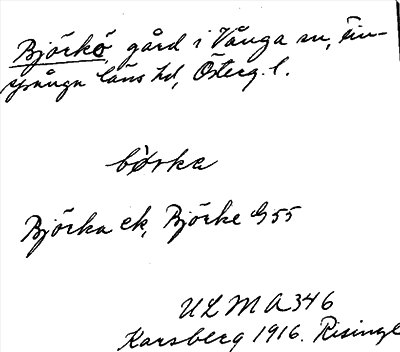 Björkö, gård i Vånga sn, Fin-
spånga läns hd, Österg. l.
börka
Björka ek, Björke G 55
ULMA 346
Karsberg 1916. Risinge